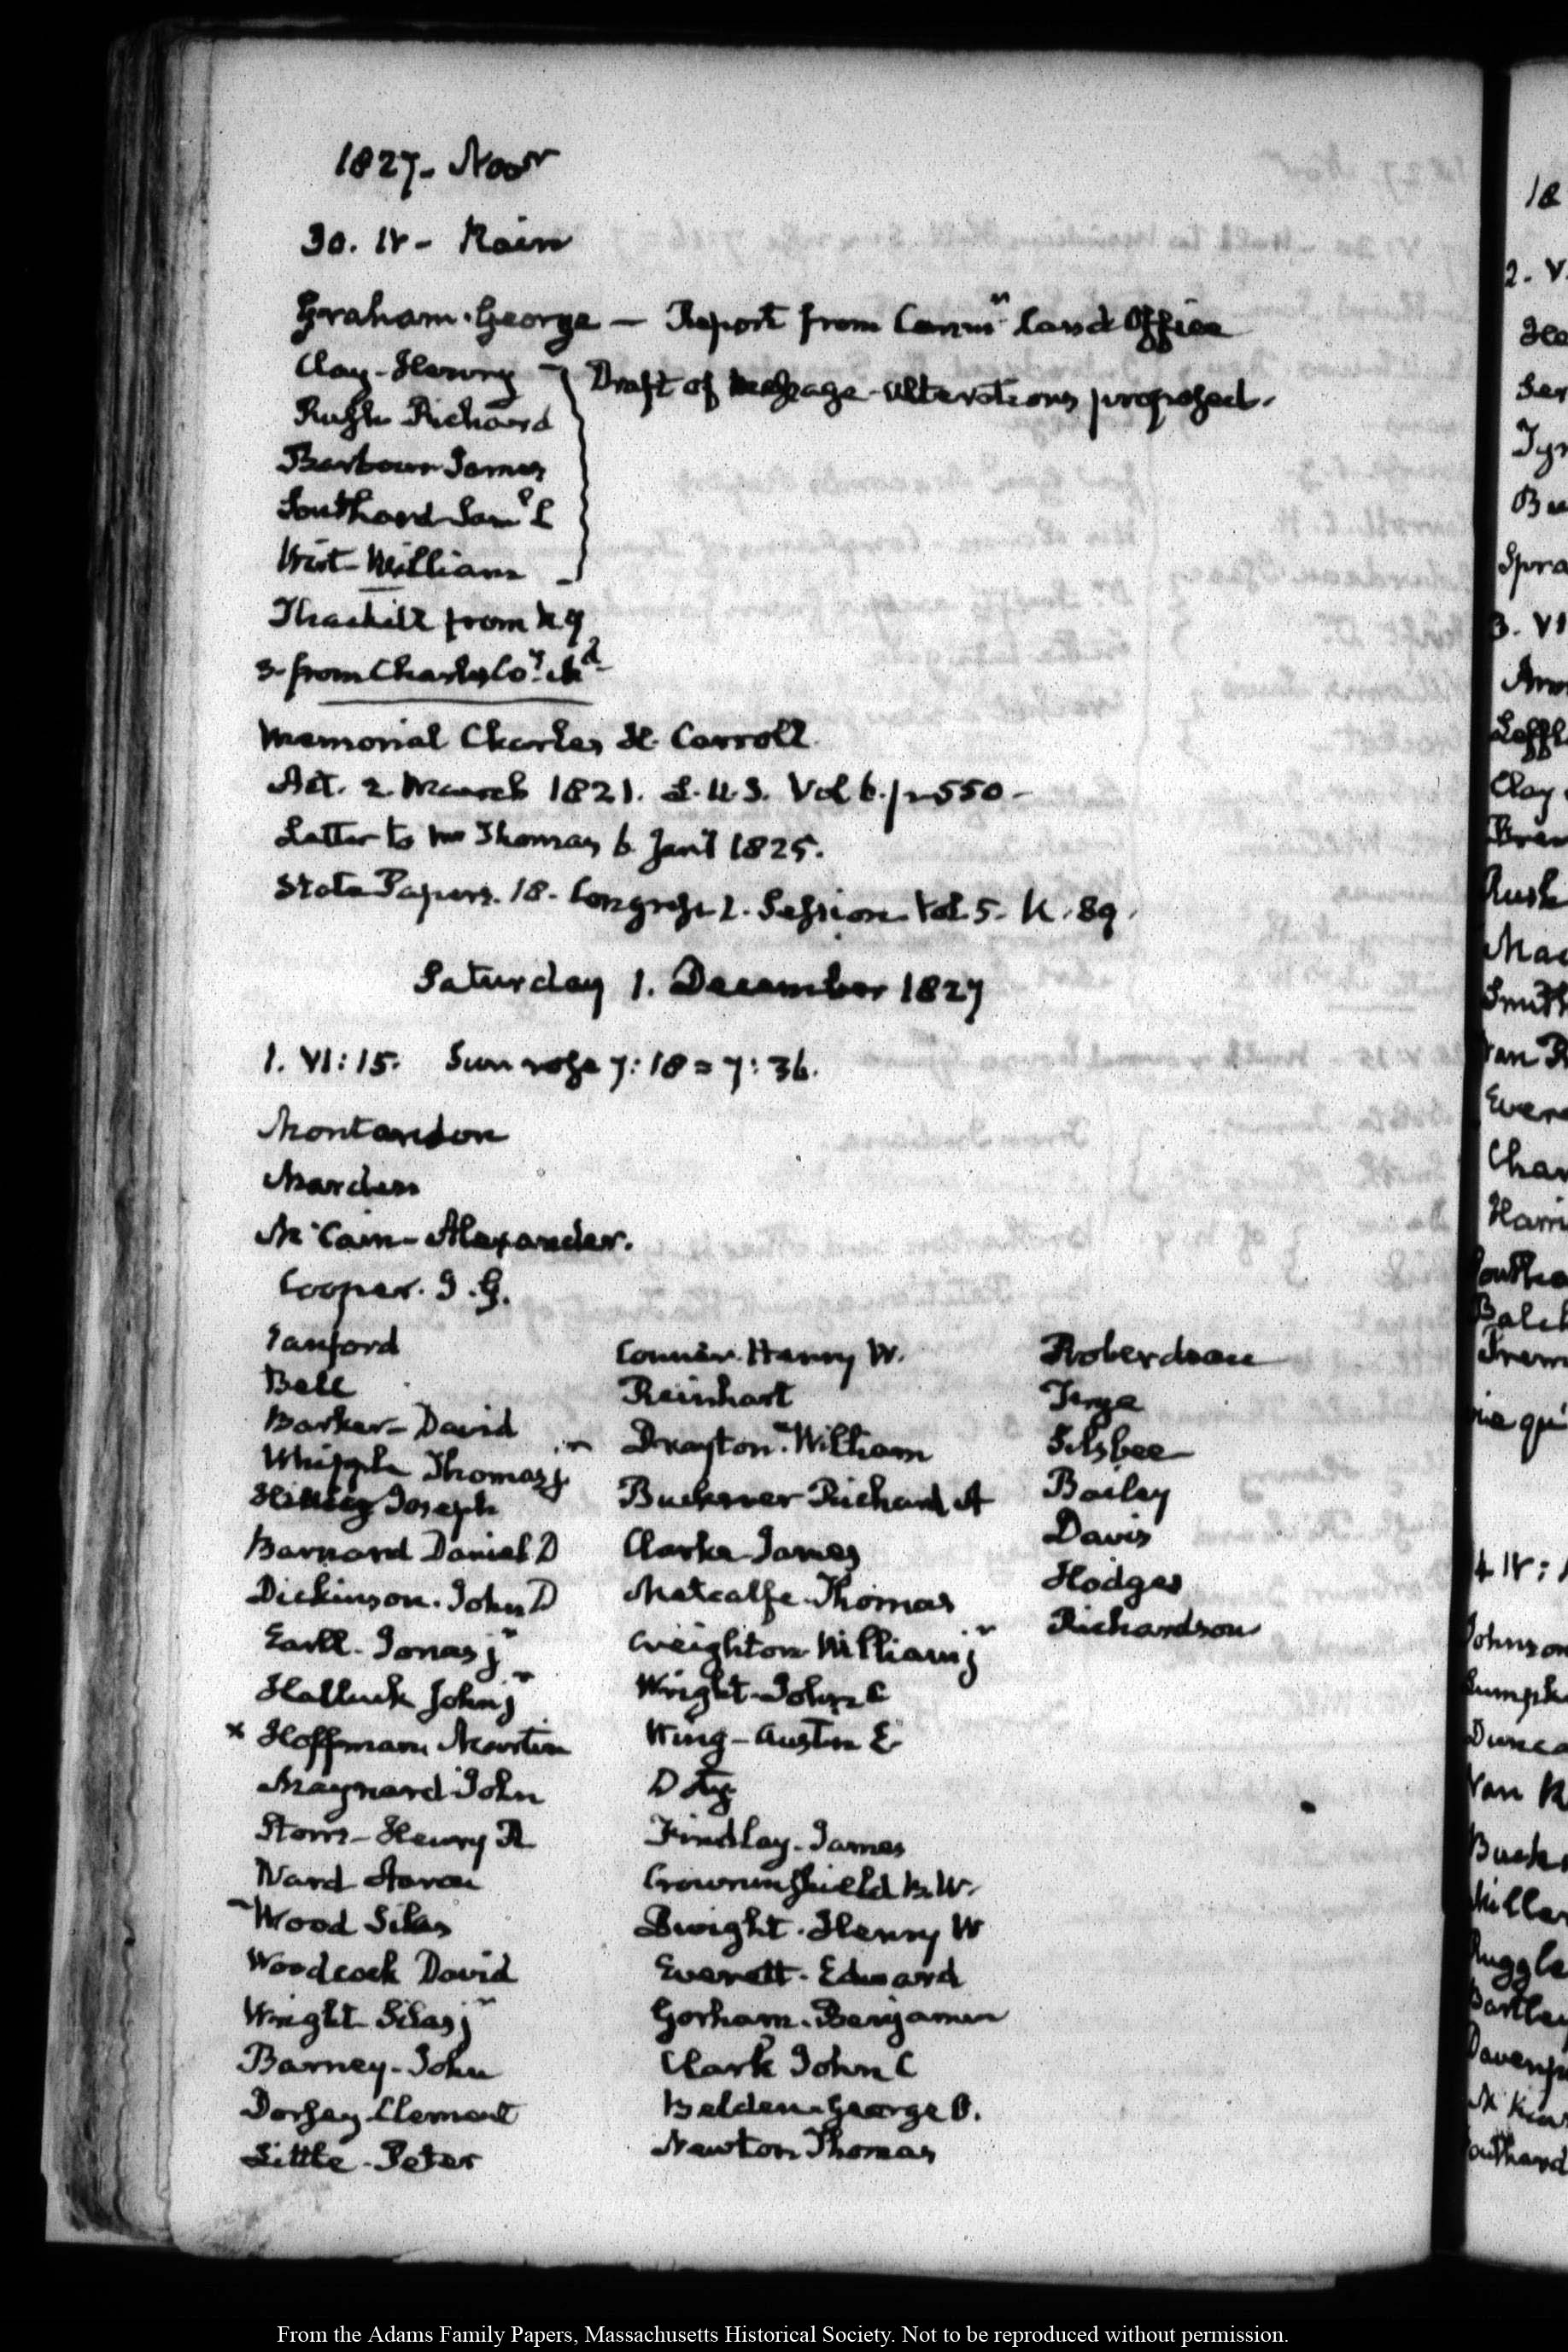 1827. Novr
30. IV - Rain
Graham. George — Report from Commr Land Office
Clay - Henry } Draft of Message - alterations proposed.
Rush Richard
Barbour James
Southard Saml L
Wirt - William
from N.Y
3 from Charles Coy Md
Memorial Charles H. Carroll
Act. 2. March 1821. L.U.S. Vol 6. p 550 -
Letter to Mr Thomas 6 Jany 1825.
State Papers. 18. Congress 2. Session Vol. 5. K. 89.
Saturday 1. December 1827
1. VI:15. Sun rose 7:18 = 7:36.
Montandon
Marden
McCain - Alexander.
Cooper. J. G.
Sanford
Bell
Barker - David
Whipple Thomas jr
Joseph
Barnard Daniel D
Dickinson. John D
Earll. Jonas jr
Hallock John jr
x Hoffman Martin
Maynard John
Storrs - Henry R
Ward Aaron
Wood Silas
Woodcock David
Wright Silas jr
Barney - John
Dorsey Clement
Little - Peter
Conner. Henry W.
Reinhart
Drayton. William
Buckner Richard A
Clarke James
Metcalfe. Thomas
Creighton William jr
Wright - John C
Wing - Austin E
Doty
Findlay. James
Crowninshield B. W.
Dwight. Henry W
Everett. Edward
Gorham. Benjamin
Clark John C
Belden George O.
Newton Thomas
Roberdeau
Silsbee
Bailey
Davis
Hodges
Richardson
18
2. V.
3. VI
Clay
Rush
From the Adams Family Papers, Massachusetts Historical Society. Not to be reproduced without permission.